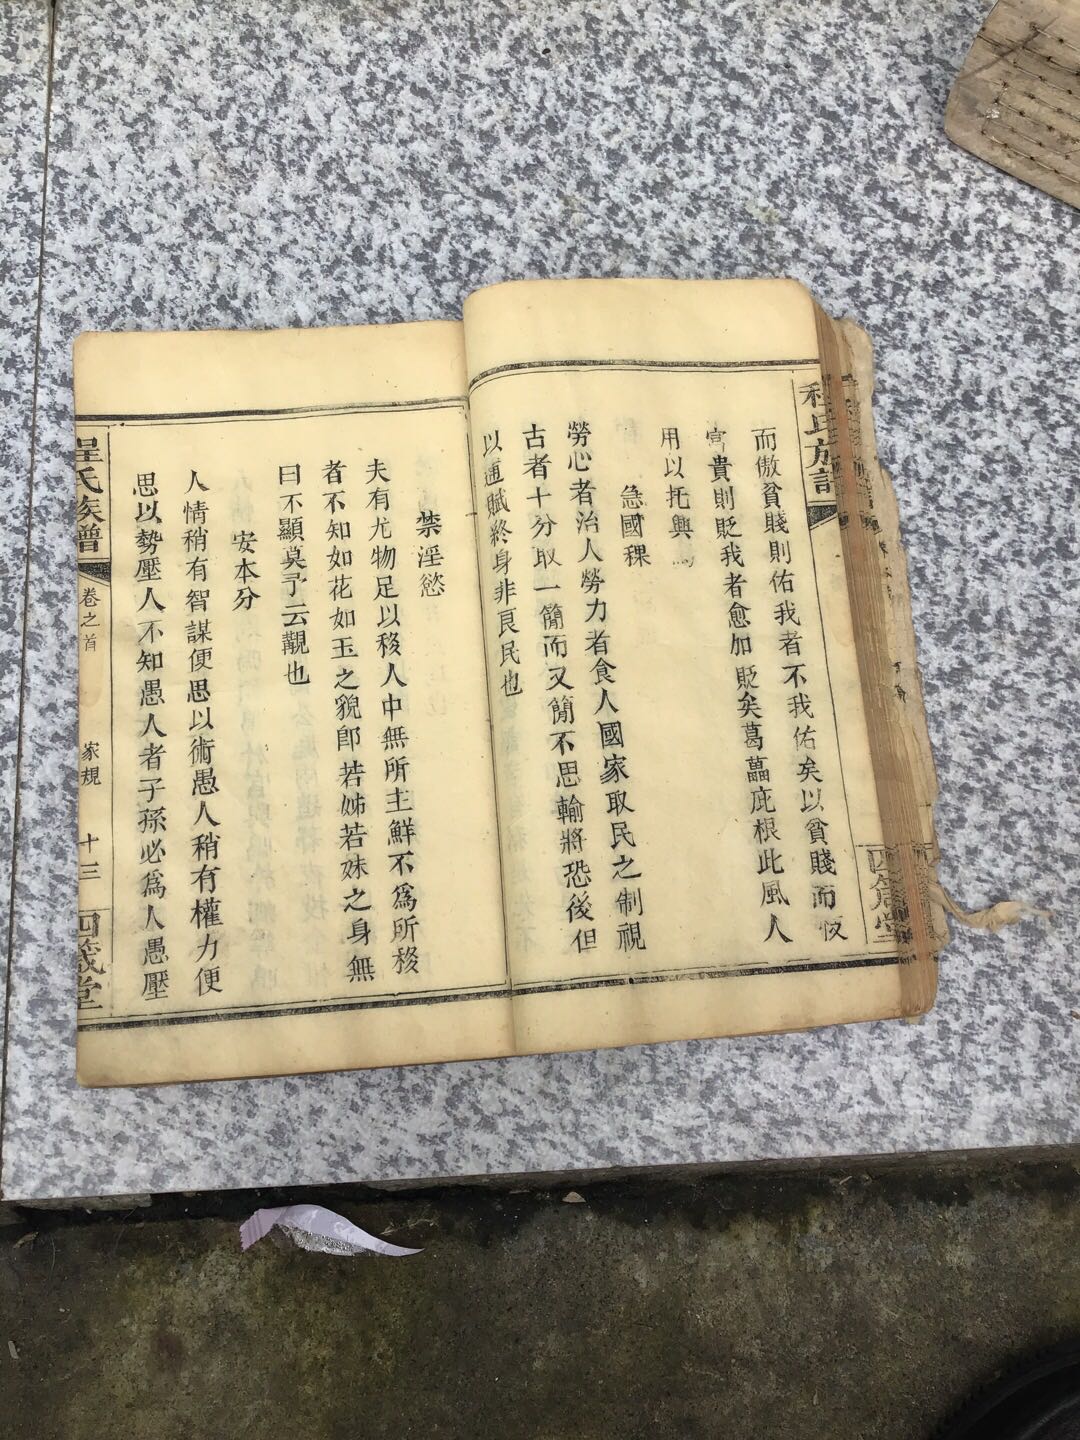 程氏族譜
四箴堂
而傲貧賤則佑我者不我佑矣以貧賤而佞
富貴則貶我者愈加貶矣葛藟庇根此風人
用以托興焉
急國稞
勞心者治人勞力者食人國家取民之制視
古者十分取一簡而又簡不思輸將恐後但
以逋賦終身非良民也
禁淫慾
夫有尤物足以移人中無所主鮮不爲所移
者不知如花如玉之貌即若姊若妹之身無
曰不顯莫予云覯也
安本分
人情稍有智謀便思以術愚人稍有權力便
思以勢壓人不知愚人者子孫必爲人愚壓
程氏族譜
卷之首
家規
十三
四箴堂